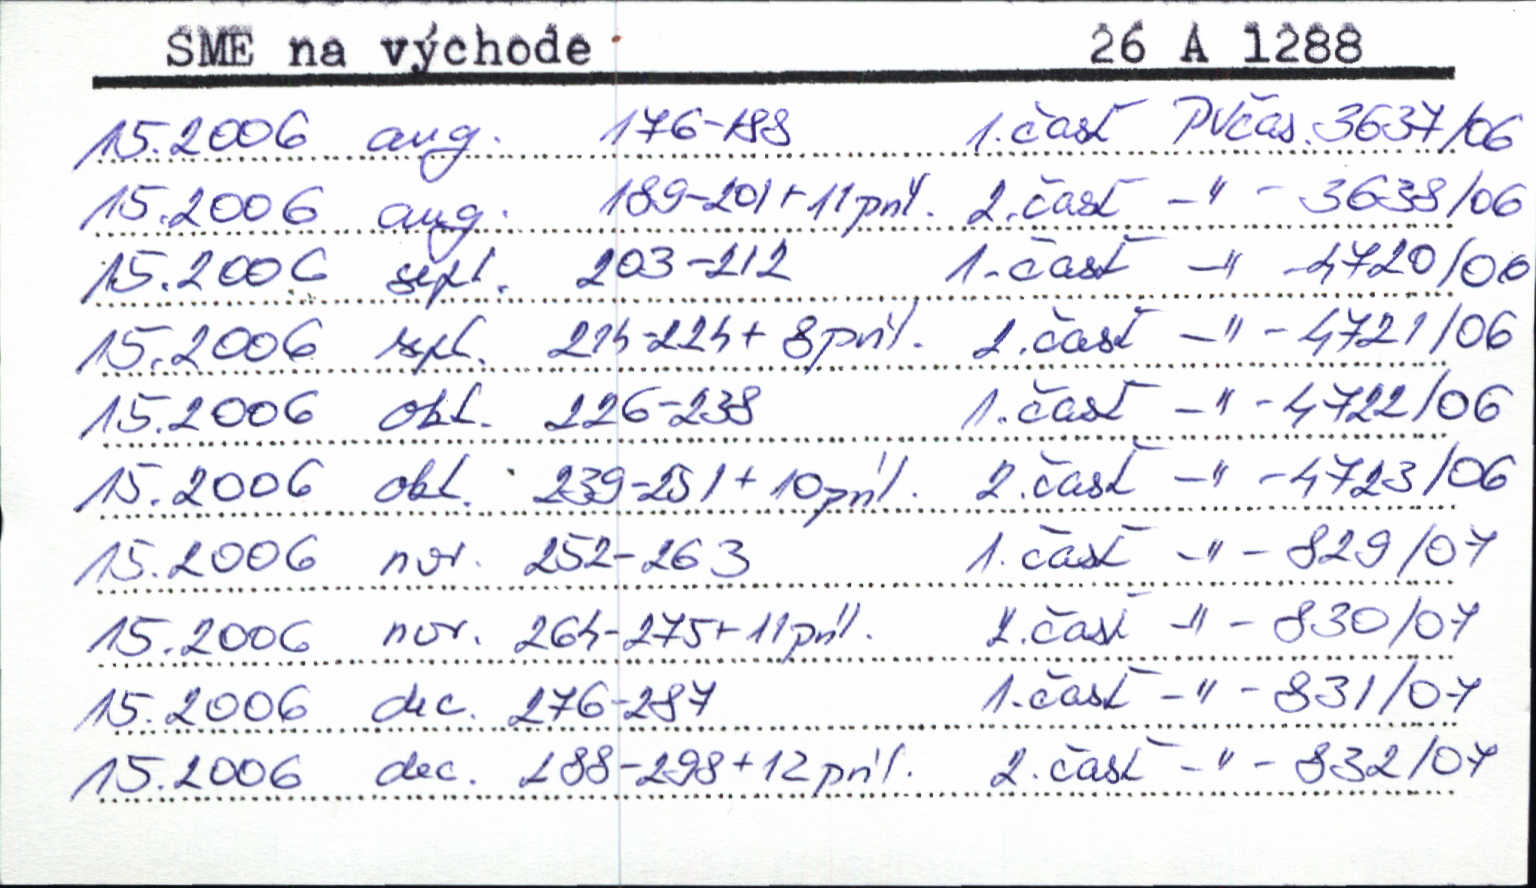 SME na východe 26 A 1288
15.2006 aug. 176-188 1.časť PVčas.3637/06
15.2006 aug. 189-201+11príl. 2.časť -"- 3638/06
15.2006 sept. 203-212 1.časť -"- 4720/06
15.2006 sept. 214-224+8príl. 2.časť -"- 4721/06
15.2006 okt. 226-238 1.časť -"- 4722/06
15.2006 okt. 239-251+10príl. 2.časť -"- 4723/06
15.2006 nov. 252-263 1.časť -"- 829/07
15.2006 nov. 264-275+11príl. 2.časť -"- 830/07
15.2006 dec. 276-287 1.časť -"- 831/07
15.2006 dec. 288-298+12príl. 2.časť -"- 832/07